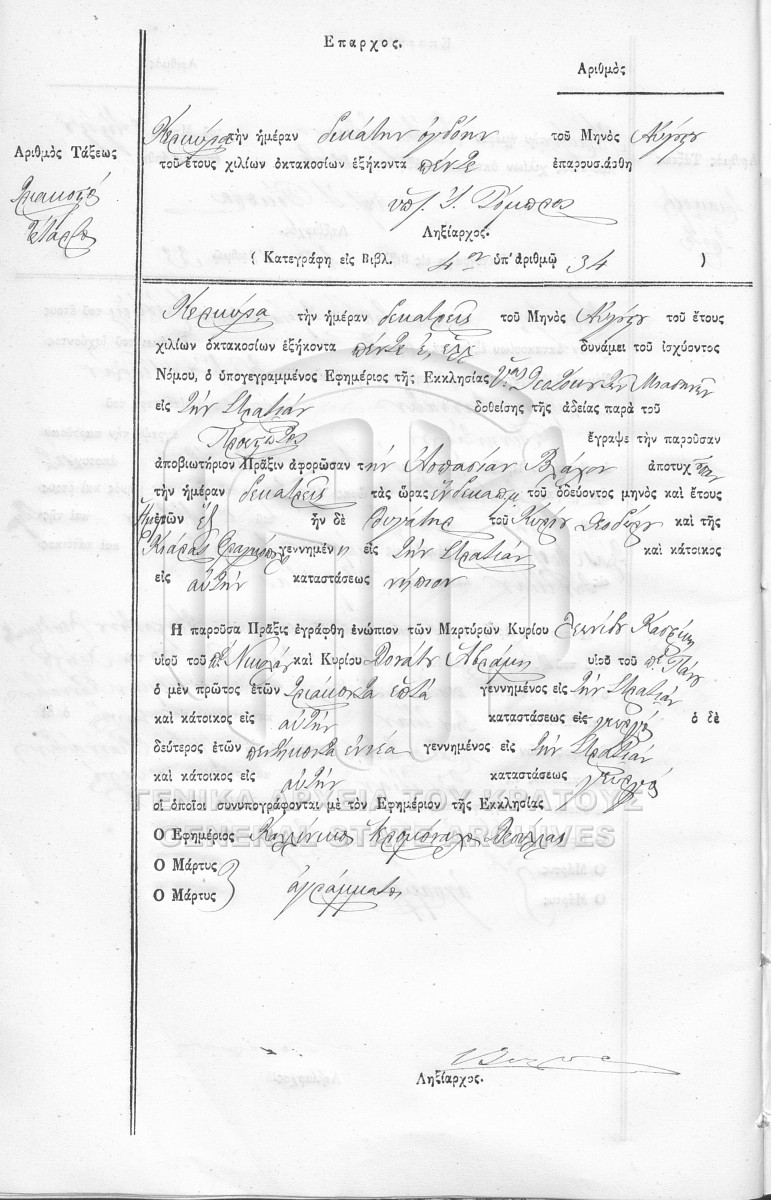 Επαρχος.
Αριθμὸς
Αριθμὸς Τάξεως
τριακοστὴ
τετάρτη
Κερκύρα τὴν ἡμέραν δεκάτην ὀγδόην τοῦ Μηνὸς Αὐγούστου
τοῦ ἔτους χιλίων ὀκτακοσίων ἑξήκοντα πέντε ἐπαρουσιάσθη
Ληξίαρχος.
( Κατεγράφη εἰς Βιβλ. 4ον ὑπ' ἀριθμῷ 34 )
Κερκύρα τὴν ἡμέραν δεκατρεῖς τοῦ Μηνὸς Αὐγούστου τοῦ ἔτους
χιλίων ὀκτακοσίων ἑξήκοντα πέντε δυνάμει τοῦ ἰσχύοντος
Νόμου, ὁ ὑπογεγραμμένος Ἐφημέριος τῆς Εκκλησίας
εἰς τὴν Στρατιὰν δοθείσης τῆς ἀδείας παρὰ τοῦ
Πρωτ. ἔγραψε τὴν παροῦσαν
ἀποβιωτήριον Πρᾶξιν ἀφορῶσαν τὴν Ἀσπασίαν Βλάχου ἀποτυχ
τὴν ἡμέραν δεκατρεῖς τὰς ὥρας ἕνδεκα π.μ. τοῦ ὁδεύοντος μηνὸς καὶ ἔτους
ἐτῶν ἓξ ἦν δὲ θυγάτηρ τοῦ Κυρίου Θεοδώρου καὶ τῆς
Κιάρας γεννημένη εἰς τὴν Στρατιὰν καὶ κάτοικος
εἰς αὐτὴν καταστάσεως νήπιον
Η παροῦσα Πρᾶξις ἐγράφθη ἐνώπιον τῶν Μαρτύρων Κυρίου Λεωνίδου
υἱοῦ τοῦ Νικολάου καὶ Κυρίου Δονάτου Ἀβράμη υἱοῦ τοῦ
ὁ μὲν πρῶτος ἐτῶν τριάκοντα ἑπτὰ γεννημένος εἰς τὴν Στρατιὰν
καὶ κάτοικος εἰς αὐτὴν καταστάσεως εἰς γεωργός ὁ δὲ
δεύτερος ἐτῶν πεντήκοντα ἐννέα γεννημένος εἰς τὴν Στρατιὰν
καὶ κάτοικος εἰς αὐτὴν καταστάσεως γεωργός
οἱ ὁποῖοι συνυπογράφονται μὲ τὸν Εφημέριον τῆς Εκκλησίας
Ο Εφημέριος Καλλίνικος Ἱερομόναχος
Ο Μάρτυς
Ο Μάρτυς ἀγράμματοι
Ληξίαρχος.
ΓΕΝΙΚΑ ΑΡΧΕΙΑ ΤΟΥ ΚΡΑΤΟΥΣ
GENERAL STATE ARCHIVES